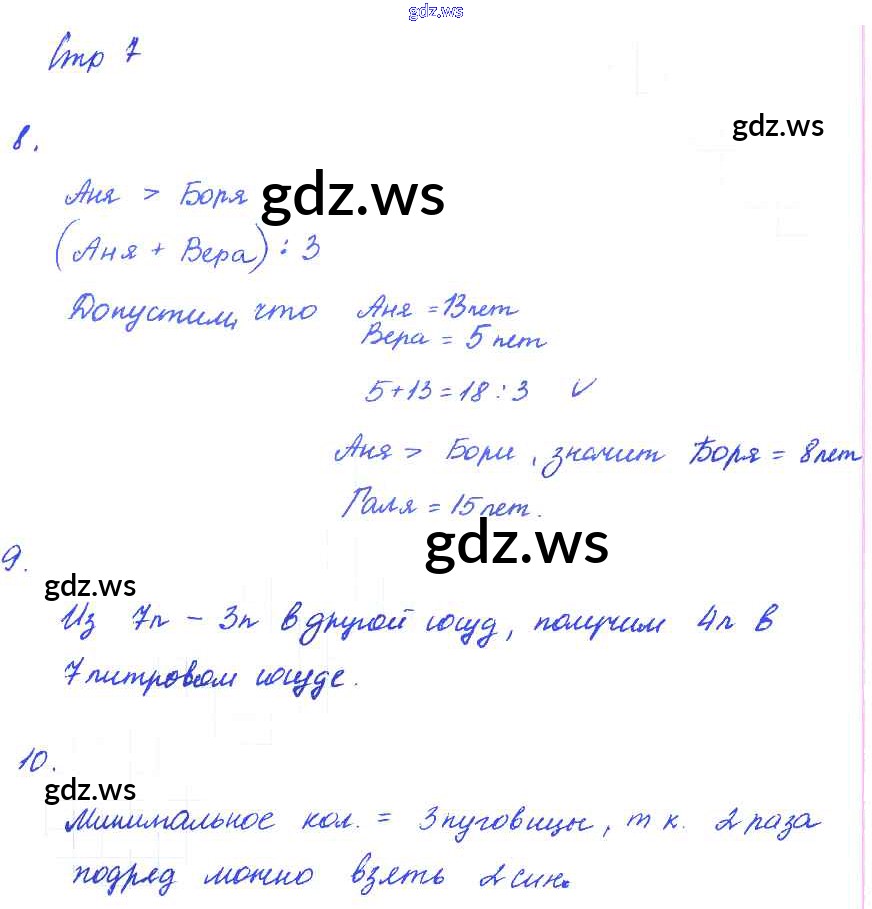 gdz.ws
Стр 7
gdz.ws
8.
Аня > Боря gdz.ws
(Аня + Вера) : 3
Допустим, что Аня = 13 лет
Вера = 5 лет
5 + 13 = 18 : 3 ✓
Аня > Бори, значит Боря = 8 лет
Галя = 15 лет.
gdz.ws
9.
gdz.ws
Из 7л - 3л в другой сосуд, получим 4л в
7 литровом сосуде.
10.
gdz.ws
Минимальное кол. = 3 пуговицы, т к. 2 раза
подряд можно взять 2 син.